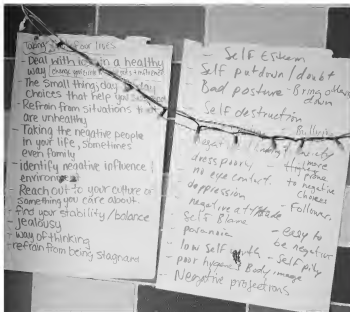 Taking our lives
- Deal with loss in a healthy
way
- The Small things, day day
Choices that help you
- Refrain from situations that
are unhealthy
- Taking the negative people
in your life, sometimes
even family
- identify negative influence
environ
- Reach out to your culture or
something you care about.
- find your stability/balance
- jealousy
- way of thinking
- refrain from being stagnant
- Self Esteem
Self putdown/doubt
- Bad posture - Bring others
down
- Self destruction
- Bullying
- dress poorly
- more prone
- no eye contact
to negative
choices
- depression
- Follower
- negative attitude
- Self Blame
- easy to
be negative
- paranoia
- low self worth
- Self pity
- poor hygiene
Body image
- Negative projections